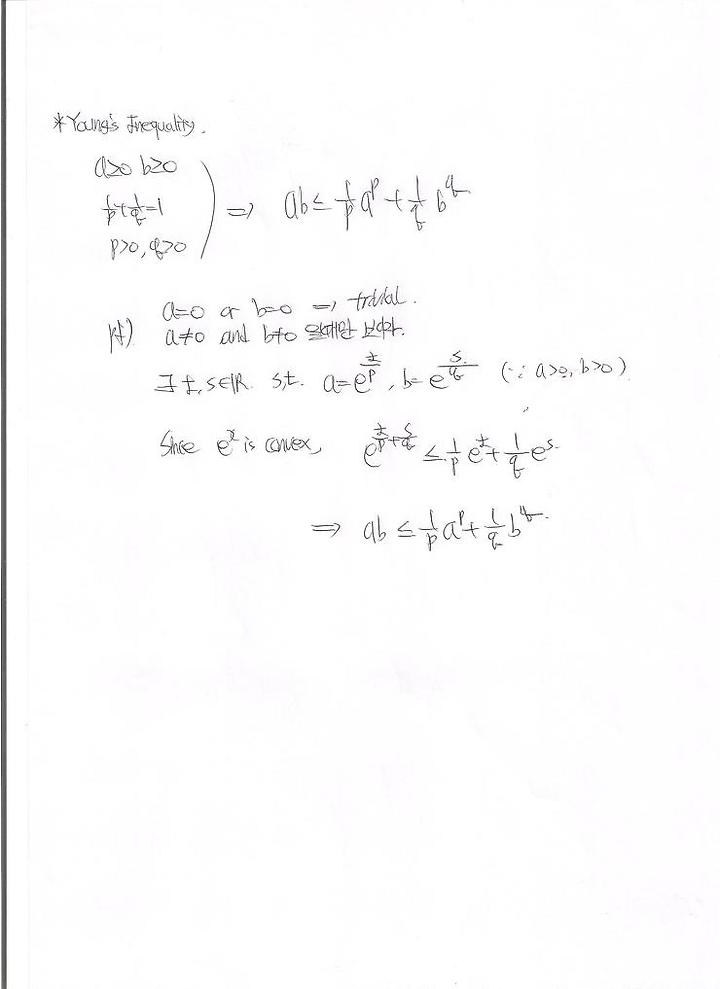 *Young's Inequality.
a≥0 b≥0
1/p+1/q=1
p>0, q>0
⇒ ab ≤ 1/p a^p + 1/q b^q
a=0 or b=0 ⇒ trivial.
pf) a≠0 and b≠0 일때만 보이자.
∃ t, s∈ℝ s.t. a=e^(t/p), b=e^(s/q) (∵ a>0, b>0)
Since e^x is convex, e^(t/p+s/q) ≤ 1/p e^t + 1/q e^s
⇒ ab ≤ 1/p a^p + 1/q b^q.